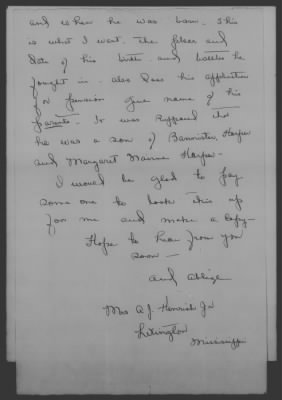 and when he was born. This
is what I want. The place and
date of his birth and battles he
fought in. also Does his application
for pension give name of his
parents. It was supposed that
he was a son of Bannister Harper
and Margaret Harper.
I would be glad to pay
some one to look this up
for me and make a copy—
Hope to hear from you
soon —
and oblige
Mrs A. J. Jr
Mississippi